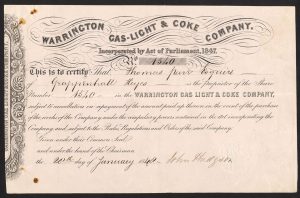 WARRINGTON
GAS-LIGHT & COKE
COMPANY.
Incorporated by Act of Parliament, 1847.
No 1340
This is to certify That Thomas Parr Esquire
Grappenhall Heyes is the Proprietor of the Share
Number 1340 in the WARRINGTON GAS LIGHT & COKE COMPANY,
subject to cancellation on repayment of the amount paid up thereon in the event of the purchase
of the works of the Company under the compulsory powers contained in the act incorporating the
Company, and subject to the Rules, Regulations and Orders of the said Company.
Given under their Common Seal
and under the hand of the Chairman
the 20th day of January 18
John